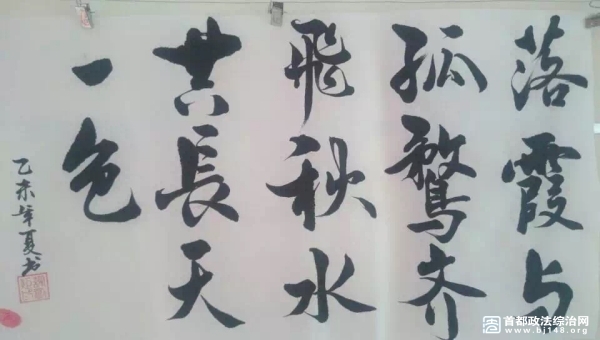 落霞与
孤鹜齐
飞秋水
共長天
一色
乙未年夏书
首都政法综治网
www.bj148.org